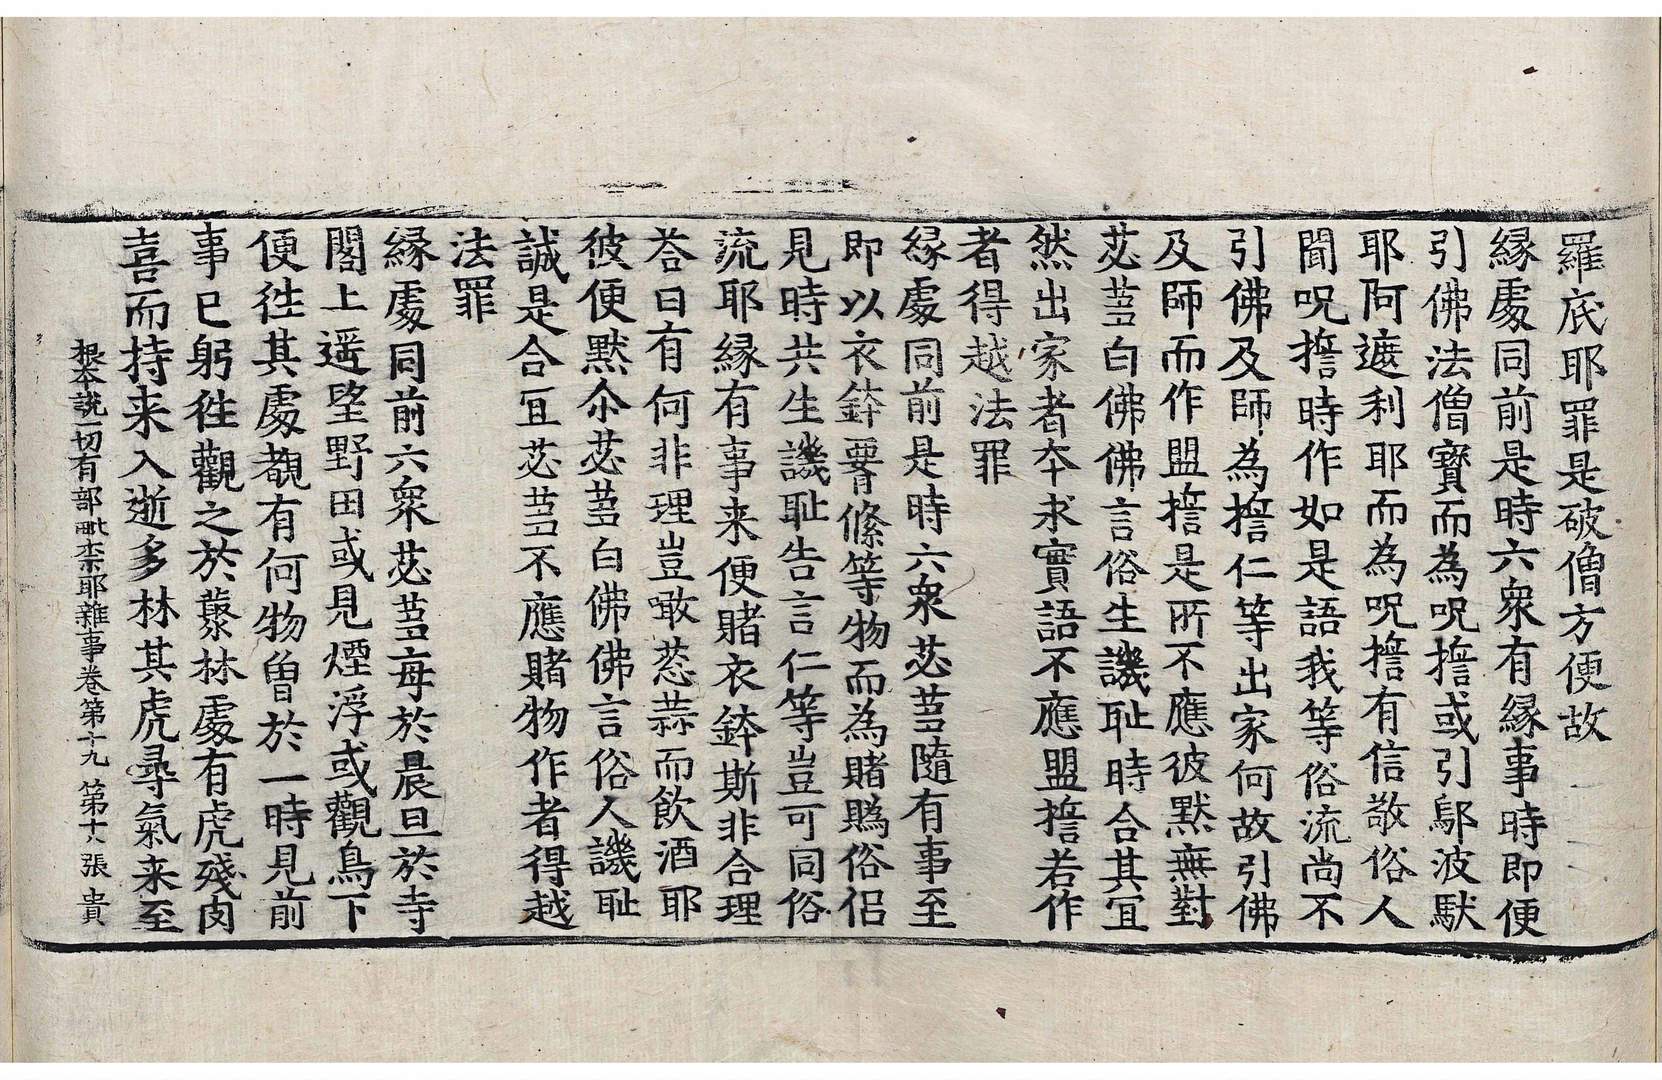 羅底耶罪是破僧方便故
緣處同前是時六衆有緣事時即便
引佛法僧寶而為呪㨪或引鄔波馱
耶阿遮利耶而為呪㨪有信敬俗人
聞呪㨪時作如是語我等俗流尚不
引佛及師為㨪仁等出家何故引佛
及師而作盟㨪是所不應彼默無對
苾芻白佛佛言俗生譏恥時合其宜
然出家者夲求實語不應盟㨪若作
者得越法罪
緣處同前是時六衆苾芻隨有事至
即以衣鉢要絛等物而為賭賜俗侶
見時共生譏恥告言仁等豈可同俗
流耶緣有事来便賭衣鉢斯非合理
荅曰有何非理豈噉葱蒜而飲酒耶
彼便默尒苾芻白佛佛言俗人譏恥
誠是合冝苾芻不應賭物作者得越
法罪
緣處同前六衆苾芻每於晨旦於寺
閣上遥望野田或見煙浮或觀鳥下
便往其處覩有何物曾於一時見前
事已躬往觀之於藂林處有虎殘肉
喜而持来入逝多林其虎尋氣来至
根夲說一切有部毗柰耶雜事卷第十九 第十八張 貴